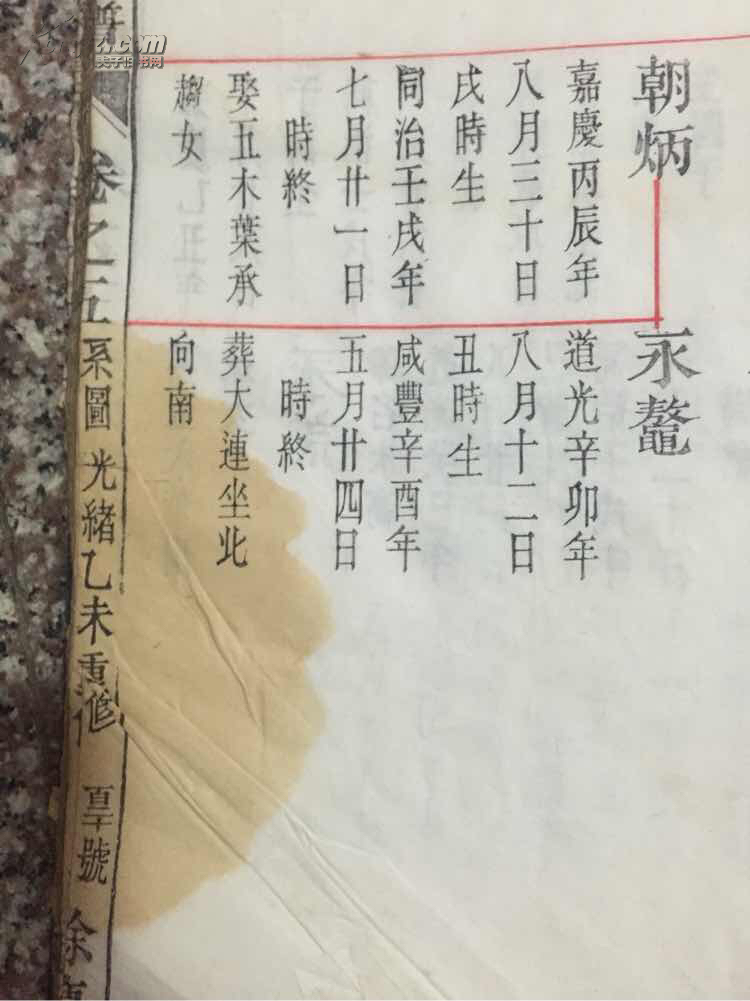 朝炳
嘉慶丙辰年
八月三十日
戌時生
同治壬戌年
七月廿一日
時終
娶五木葉承
趨女
永鰲
道光辛卯年
八月十二日
丑時生
咸豐辛酉年
五月廿四日
時終
葬大連坐北
向南
卷之五 系圖 光緒乙未重修 號 徐